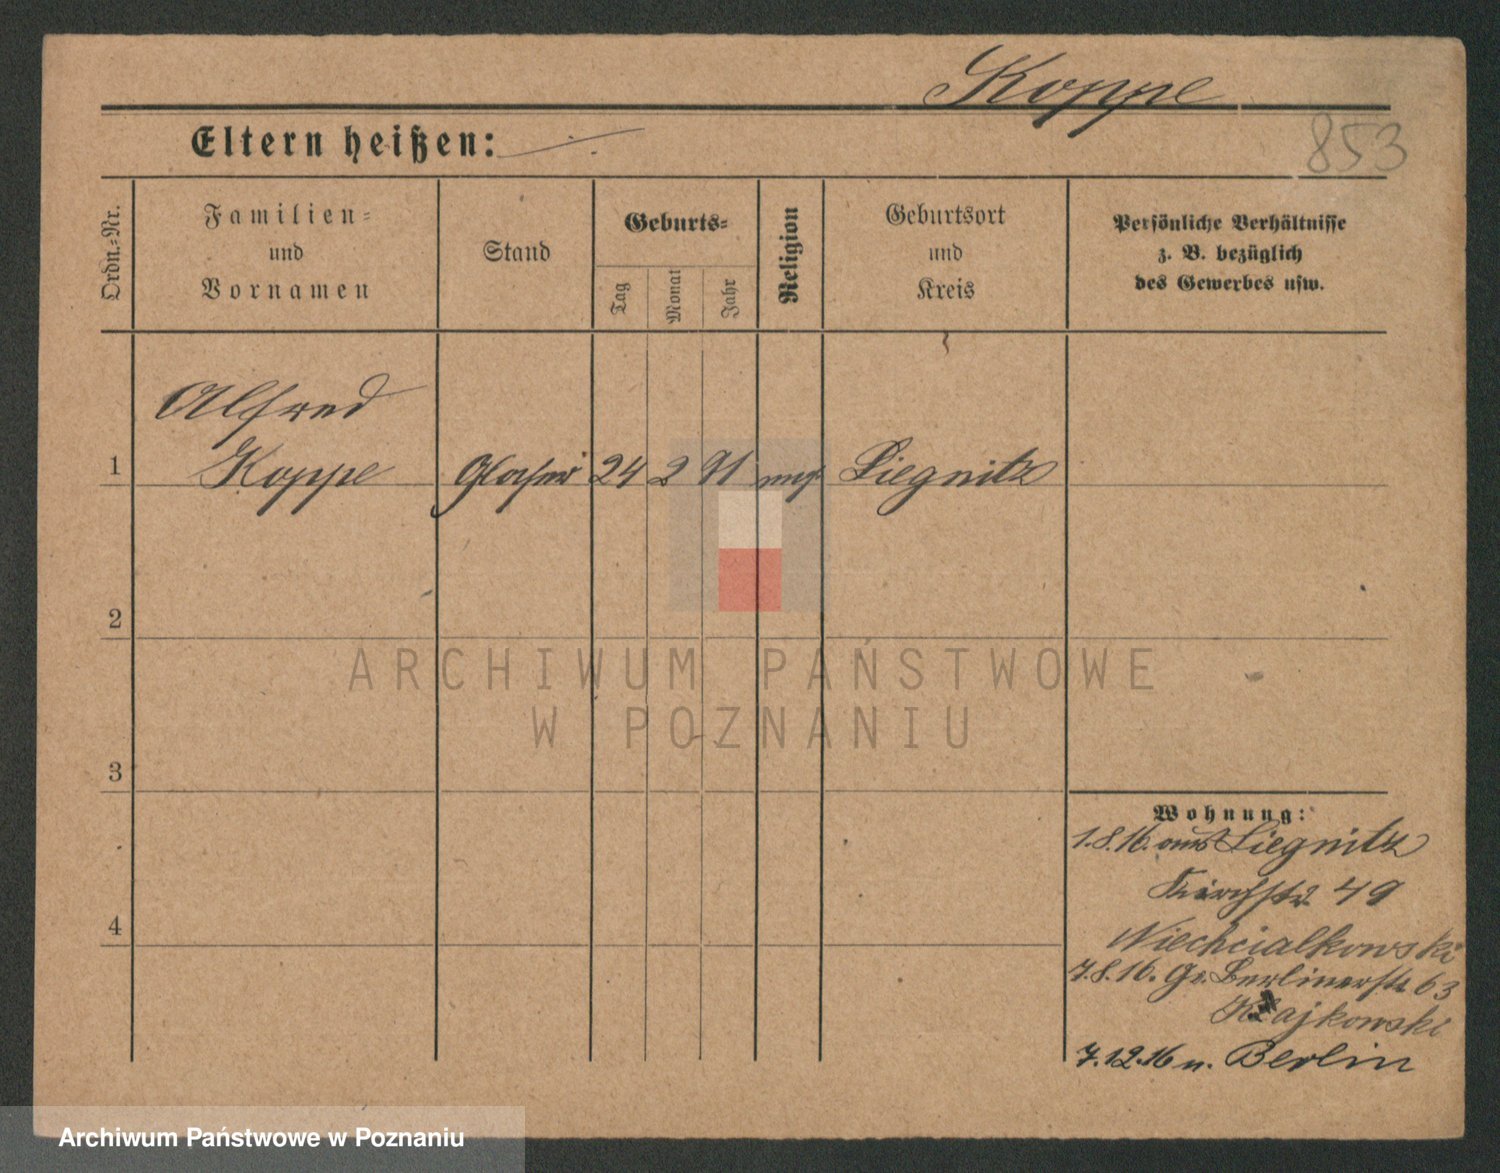 Koppe
853
Eltern heißen:
Ordn.-Nr.
Familien-
und
Vornamen
Stand
Geburts-
Tag
Monat
Jahr
Religion
Geburtsort
und
Kreis
Persönliche Verhältnisse
z. B. bezüglich
des Gewerbes usw.
Alfred
1 Koppe Glaser 24 2 91 Liegnitz
2
3
4
Wohnung:
1.8.16. aus Liegnitz
Kirchstr. 49
Niechcialkowski
7.8.16. Gr. Berlinerstr. 63
Krajkowski
7.12.16 n. Berlin
ARCHIWUM PAŃSTWOWE
W POZNANIU
Archiwum Państwowe w Poznaniu